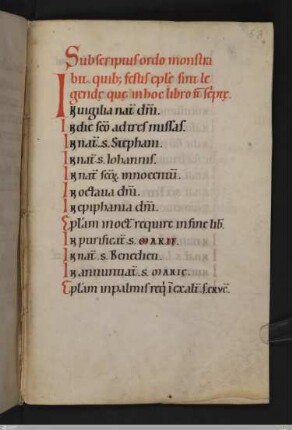 Subscriptus ordo monstra
bit. quib; festis eple sint le
gende que in hoc libro st scripte.
In uigilia nat dm̄.
In die sco ad tres missas.
In nat̄. s. Stephani.
In nat̄. s. Iohannis.
In nat̄ scōꝝ innocentū.
In octaua dm̄.
In epiphania dm̄.
Eplam in oct̄ require in fine lib.
In purificat̄. s. MARIE.
In nat̄. s. Benedicti.
In annuntiat̄. s. MARIE.
Eplam in palmis req̄ í exalt̄. s. crvc̄.